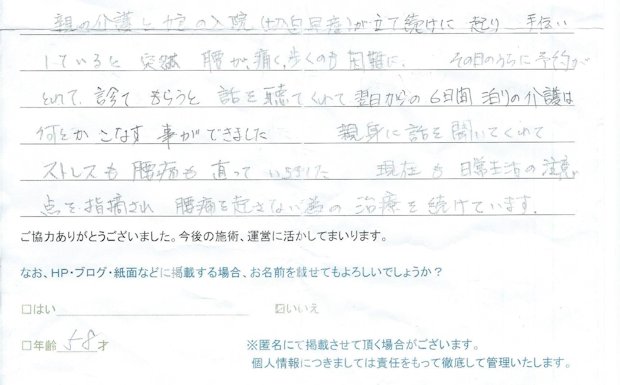 親の介護と娘の入院(切迫早産)が立て続けに起り 手伝い
していると 突然 腰が痛く、歩くのも困難に。 その日のうちに予約が
とれて、診て もらうと 話を聴てくれて 翌日からの6日間 泊りの介護は
何とか こなす 事ができました 親身に話を聞いてくれて
ストレスも 腰痛も 直って いきました 現在 も 日常生活の 注意
点を 指摘され 腰痛を起さない為の 治療を続けています.
ご協力ありがとうございました。今後の施術、運営に活かしてまいります。
なお、HP・ブログ・紙面などに掲載する場合、お名前を載せてもよろしいでしょうか?
□はい ☑いいえ
□年齢 58 才 ※匿名にて掲載させて頂く場合がございます。
個人情報につきましては責任をもって徹底して管理いたします。